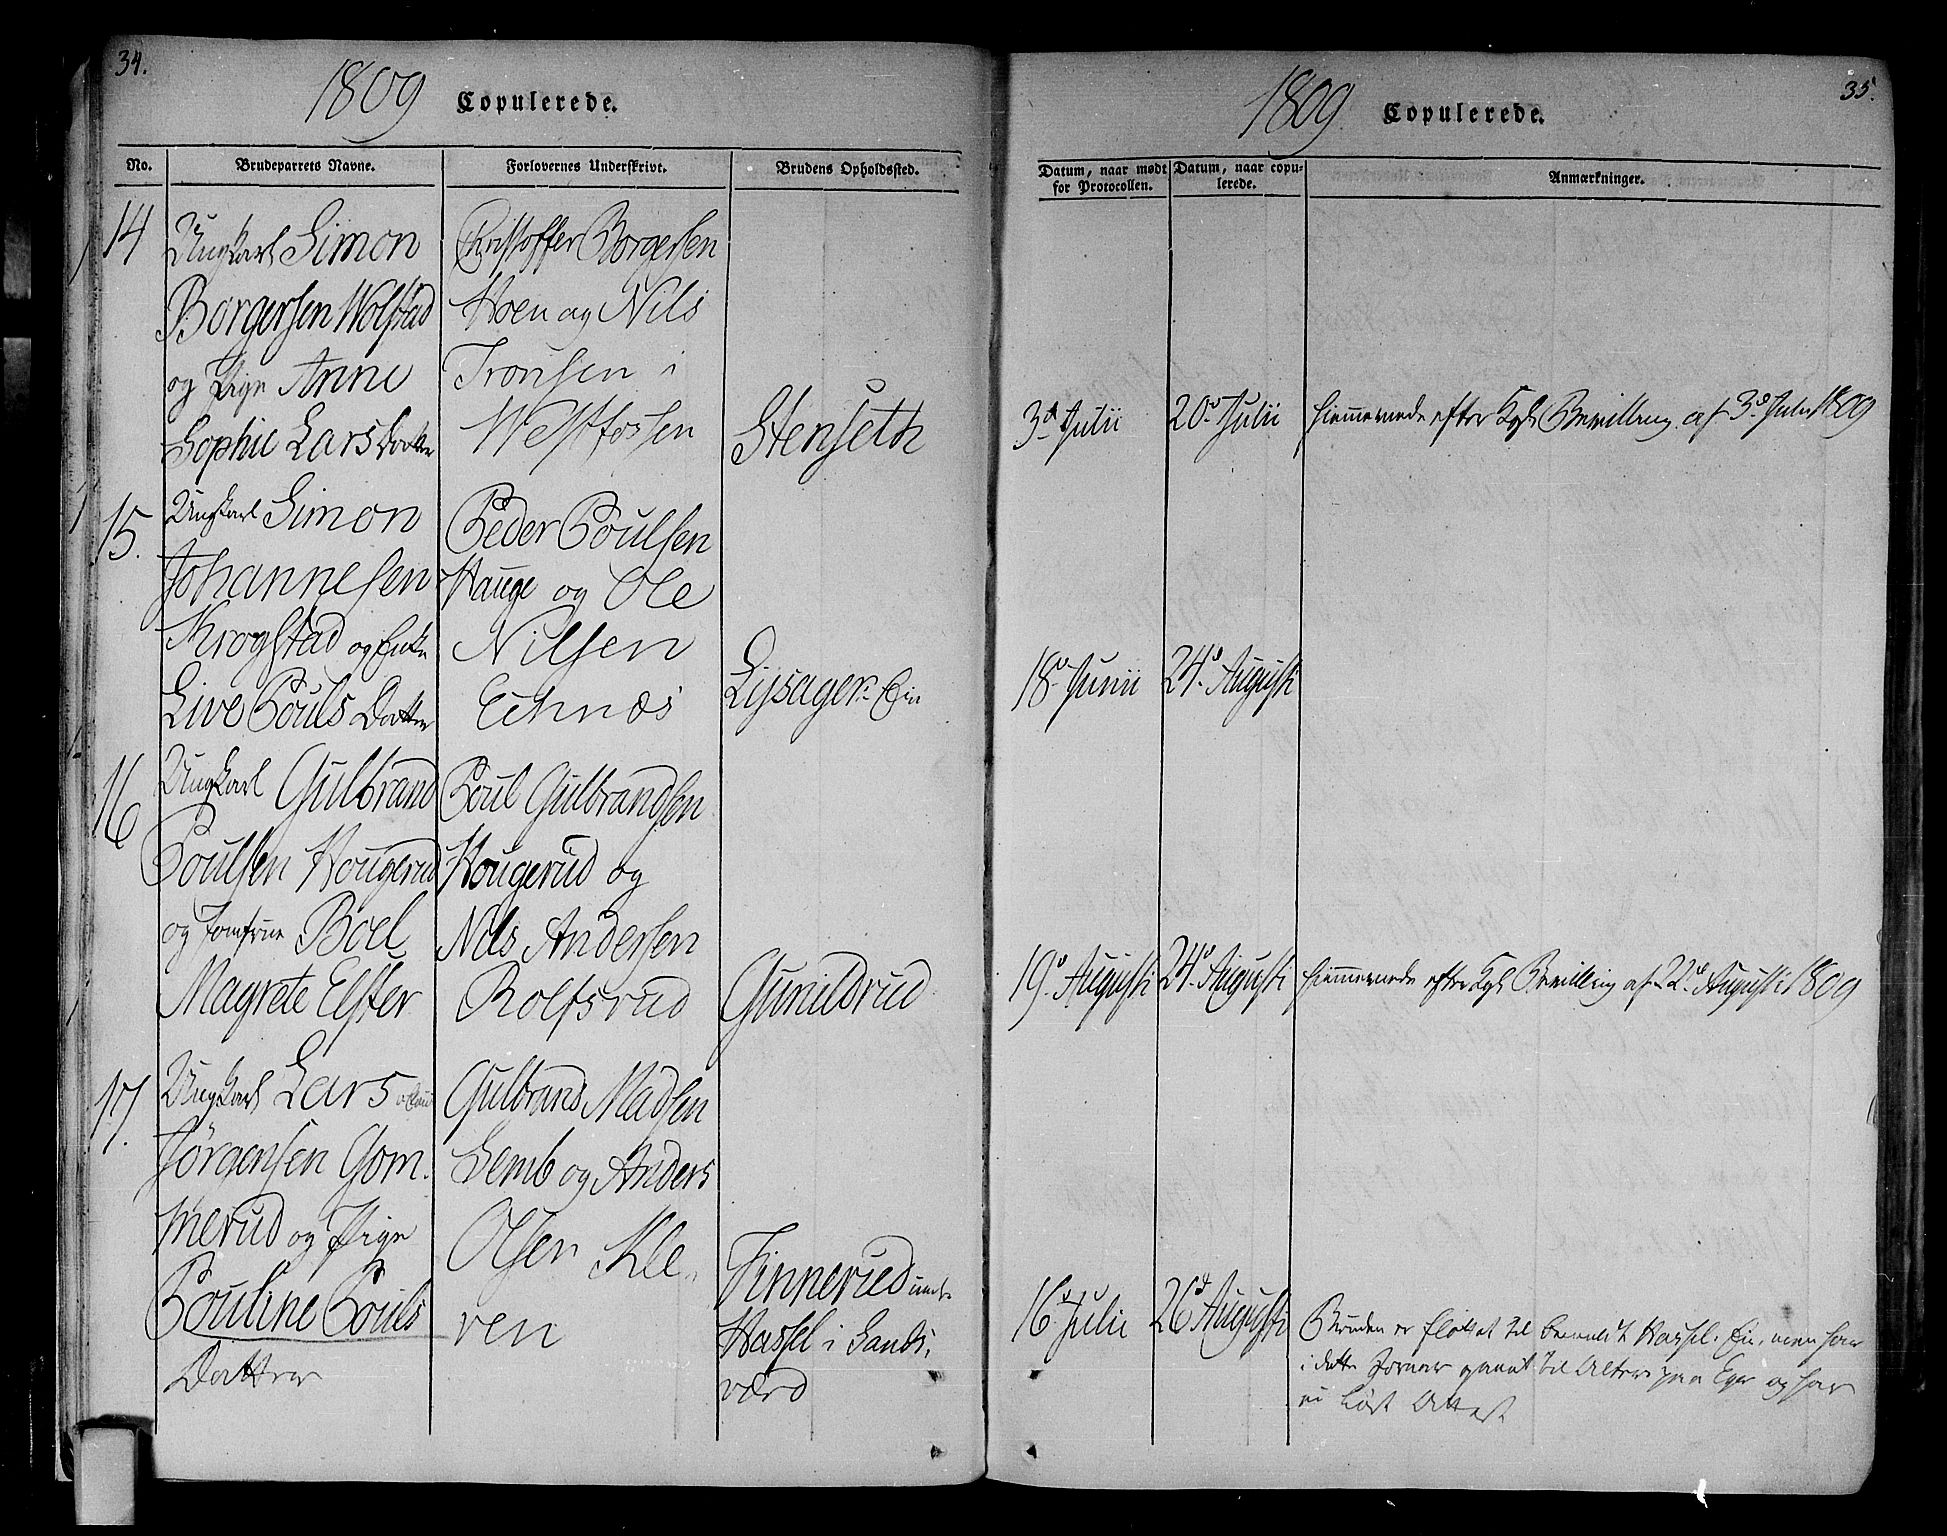 34.
1809 Copulerede.
No. Brudeparrets Navne. Forlovernes Underskrivt. Brudens Opholdssted.
14
Ungkarl Simon
Borgersen Wolstad
og Pige Anne
Sophie Lars Datter
Christoffer Borgersen
Hoen og Nils
Tronsen i
Westfossen
Stenseth
15.
Ungkarl Simon
Johannesen
Krogstad og Enke
Live Pouls Datter
Peder Poulsen
Hauge og Ole
Nilsen
Echnæs
Lysager
16
Ungkarl Gulbrand
Poulsen Hougerud
og Jomfrue Boel
Magrete Elster
Poul Gulbrandsen
Hougerud og
Nils Andersen
Rolfsrud
Gunildrud
17.
Ungkarl Lars
Jörgensen Gom-
merud og Pige
Pouline Pouls
Datter
Gulbrand Madsen
Semb og Anders
Olsen Kle-
ven
Finnerud under
Hassel i Sands-
værd
35.
1809 Copulerede.
Datum, naar mødt for Protocollen. Datum, naar copulerede. Anmærkninger.
3d Julii 20d Julii hiemmeviede efter Kgl Bevilling af 3d Julii 1809
18d Junii 24d Augusti
19d Augusti 24d Augusti hiemmeviede efter Kgl Bevilling af 22d Augusti 1809
16d Julii 26d Augusti
Bruden er flöttet til bemeldt Hassel, men har
i dette Foraar gaaet til Alters paa Eger og har
ei löst Attest